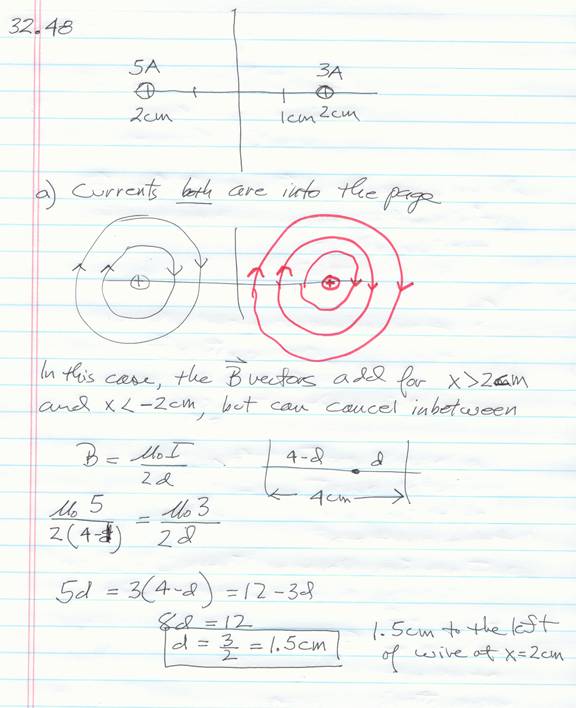 32.48
5A 3A
2cm 1cm 2cm
a) Currents both are into the page
In this case, the B⃗ vectors add for x>2cm
and x<-2cm, but can cancel inbetween
B = μ₀I / 2d
4-d d
4cm
μ₀5 / 2(4-d) = μ₀3 / 2d
5d = 3(4-d) = 12-3d
8d = 12
d = 3/2 = 1.5cm
1.5cm to the left
of wire at x=2cm